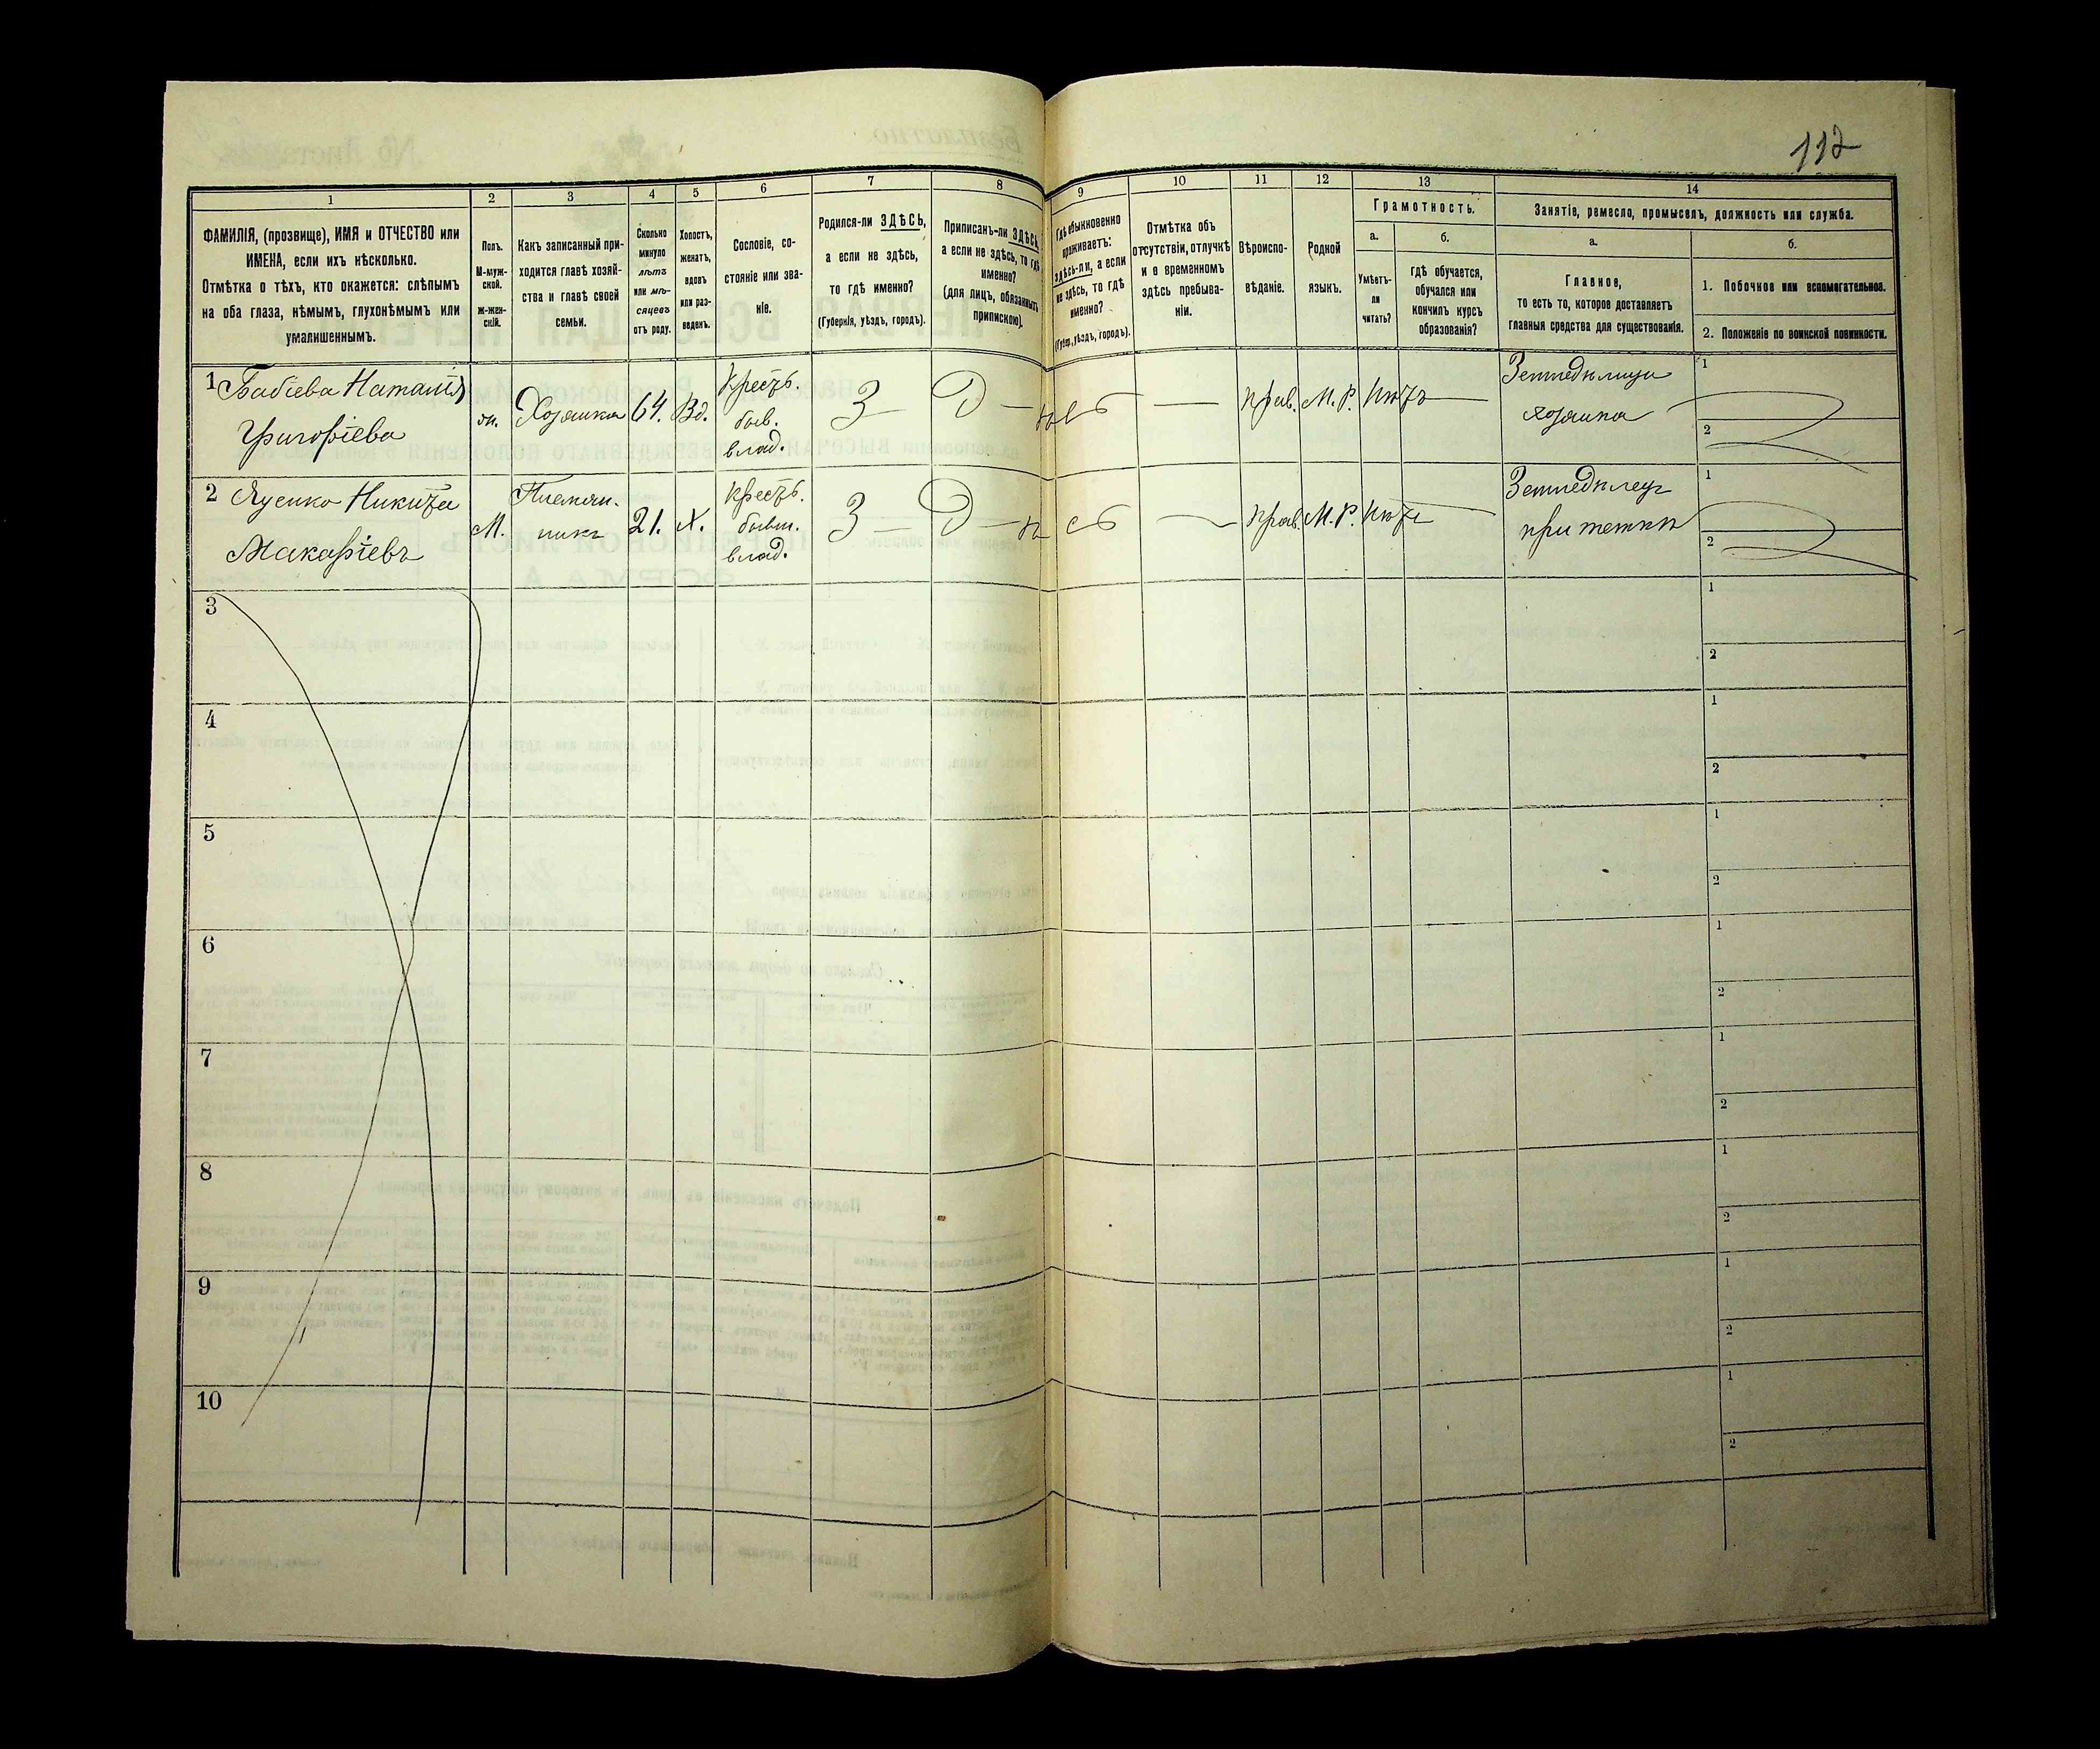 112
1 2 3 4 5 6 7 8 9 10 11 12 13 14
ФАМИЛІЯ, (прозвище), ИМЯ и ОТЧЕСТВО или
ИМЕНА, если ихъ нѣсколько.
Отмѣтка о тѣхъ, кто окажется: слѣпымъ
на оба глаза, нѣмымъ, глухонѣмымъ или
умалишеннымъ.
Полъ.
М-муж-
ской.
ж-жен-
скій.
Какъ записанный при-
ходится главѣ хозяй-
ства и главѣ своей
семьи.
Сколько
минуло
лѣтъ
или мѣ-
сяцевъ
отъ роду.
Холостъ,
женатъ,
вдовъ
или раз-
веденъ.
Сословіе, со-
стояніе или зва-
ніе.
Родился-ли ЗДѢСЬ,
а если не здѣсь,
то гдѣ именно?
(Губернія, уѣздъ, городъ).
Приписанъ-ли ЗДѢСЬ,
а если не здѣсь, то гдѣ
именно?
(для лицъ, обязанныхъ
припискою).
Гдѣ обыкновенно
проживаетъ:
здѣсь-ли, а если
не здѣсь, то гдѣ
именно?
(Губер., уѣздъ, городъ).
Отмѣтка объ
отсутствіи, отлучкѣ
и о временномъ
здѣсь пребыва-
ніи.
Вѣроиспо-
вѣданіе.
Родной
языкъ.
Грамотность.
а.
Умѣетъ-
ли
читать?
б.
гдѣ обучается,
обучался или
кончилъ курсъ
образованія?
Занятіе, ремесло, промыселъ, должность или служба.
а.
Главное,
то есть то, которое доставляетъ
главныя средства для существованія.
б.
1. Побочное или вспомогательное.
2. Положеніе по воинской повинности.
1 Бабіева Наталія
Григорьева
ж.
Хозяйка
64.
Вд.
Крест.
быв.
влад.
З
прав.
М. Р.
нѣтъ
Земледѣлица
хозяйка
1
2
2 Яценко Никита
Макаріевъ
М.
Племян-
никъ
21.
Х.
Крест.
бывш.
влад.
З
прав.
М. Р.
нѣтъ
Земледѣлецъ
при теткѣ
1
2
3
1
2
4
1
2
5
1
2
6
1
2
7
1
2
8
1
2
9
1
2
10
1
2